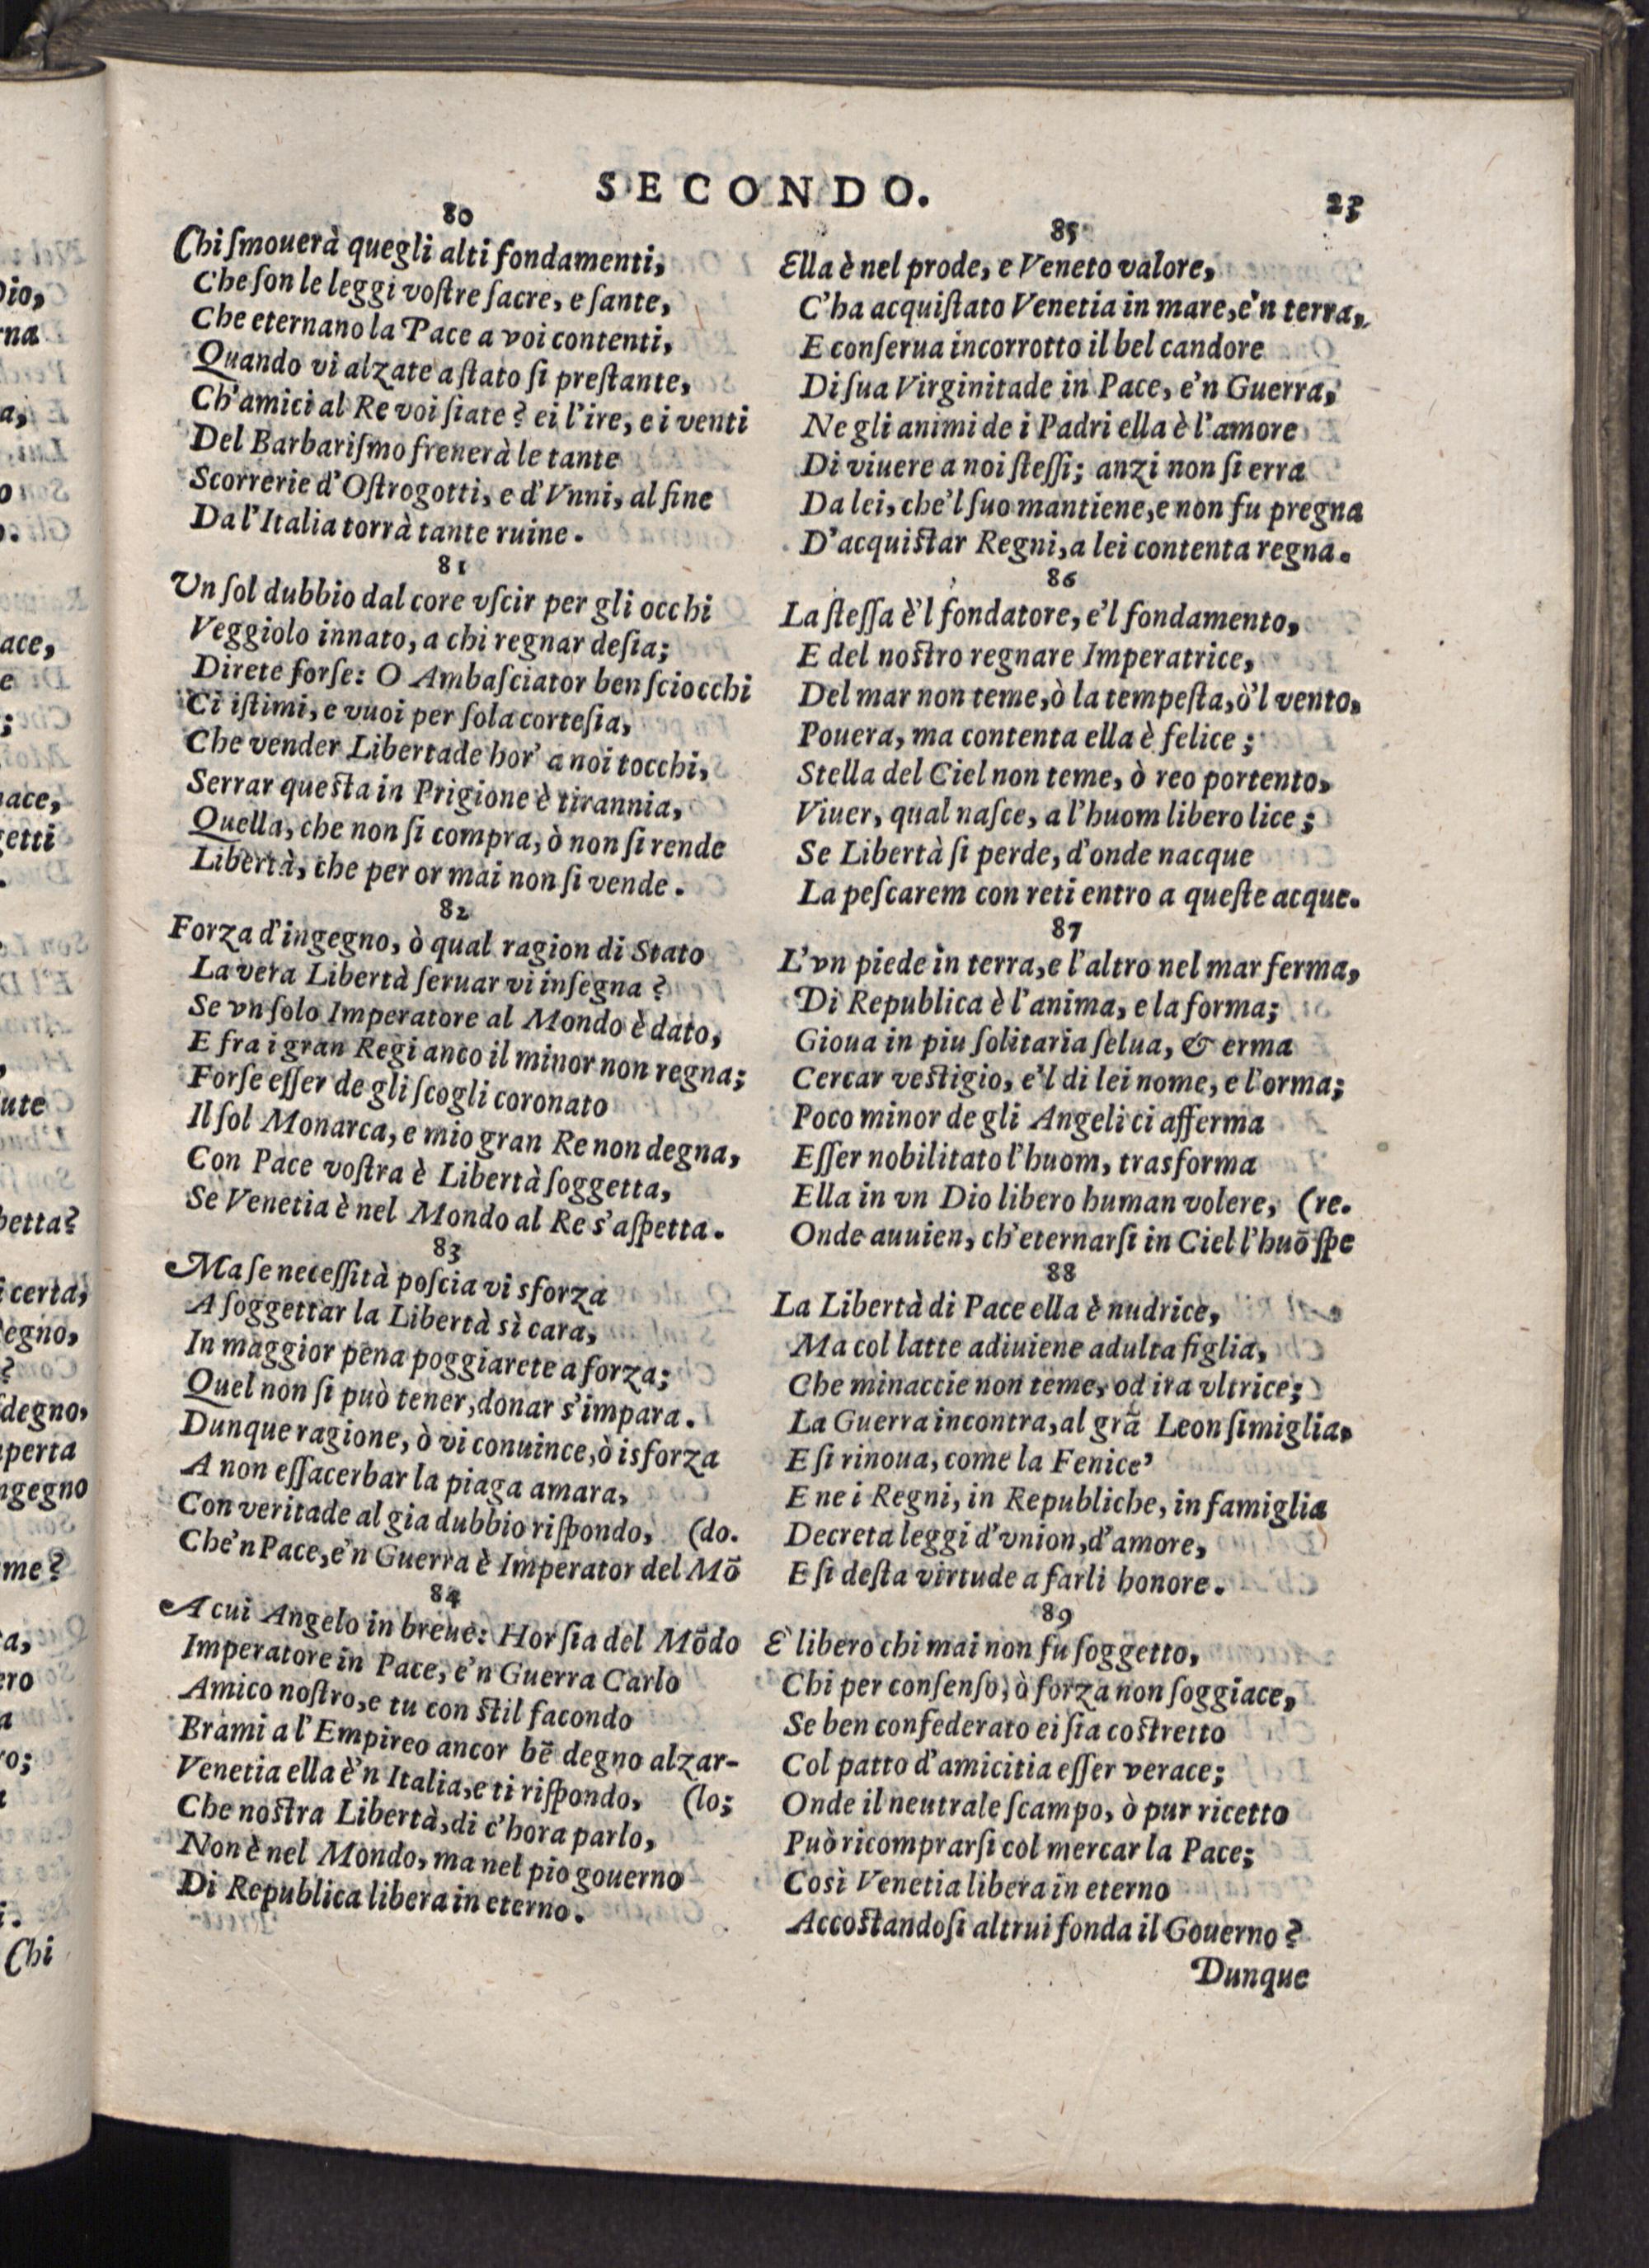 SECONDO.
23
80
Chi ſmouerà quegli alti fondamenti,
Che ſon le leggi voſtre ſacre, e ſante,
Che eternano la Pace a voi contenti,
Quando vi alzate a ſtato ſi preſtante,
Ch'amici al Re voi ſiate? ei l'ire, e i venti
Del Barbariſmo frenerà le tante
Scorrerie d'Oſtrogotti, e d'Vnni, al fine
Da l'Italia torrà tante ruine.
81
Vn ſol dubbio dal core vſcir per gli occhi
Veggiolo innato, a chi regnar deſia;
Direte forſe: O Ambaſciator ben ſciocchi
Ci iſtimi, e vuoi per ſola corteſia,
Che vender Libertade hor' a noi tocchi,
Serrar queſta in Prigione è tirannia,
Quella, che non ſi compra, ò non ſi rende
Libertà, che per or mai non ſi vende.
82
Forza d'ingegno, ò qual ragion di Stato
La vera Libertà ſeruar vi inſegna?
Se vn ſolo Imperatore al Mondo è dato,
E fra i gran Regi anco il minor non regna;
Forſe eſſer de gli ſcogli coronato
Il ſol Monarca, e mio gran Re non degna,
Con Pace voſtra è Libertà ſoggetta,
Se Venetia è nel Mondo al Re s'aſpetta.
83
Ma ſe neceſſità poſcia vi sforza
A ſoggettar la Libertà sì cara,
In maggior pena poggiarete a forza;
Quel non ſi può tener, donar s'impara.
Dunque ragione, ò vi conuince, ò isforza
A non eſſacerbar la piaga amara,
Con veritade al gia dubbio riſpondo, (do.
Che'n Pace, e'n Guerra è Imperator del Mō
84
A cui Angelo in breue: Hor ſia del Mōdo
Imperatore in Pace, e'n Guerra Carlo
Amico noſtro, e tu con ſtil facondo
Brami a l'Empireo ancor bē degno alzar-
Venetia ella è'n Italia, e ti riſpondo, (lo;
Che noſtra Libertà, di c'hora parlo,
Non è nel Mondo, ma nel pio gouerno
Di Republica libera in eterno.
85
Ella è nel prode, e Veneto valore,
C'ha acquiſtato Venetia in mare, e'n terra,
E conſerua incorrotto il bel candore
Di ſua Virginitade in Pace, e'n Guerra,
Ne gli animi de i Padri ella è l'amore
Di viuere a noi ſteſſi; anzi non ſi erra
Da lei, che'l ſuo mantiene, e non fu pregna
D'acquiſtar Regni, a lei contenta regna.
86
La ſteſſa è'l fondatore, e'l fondamento,
E del noſtro regnare Imperatrice,
Del mar non teme, ò la tempeſta, ò'l vento,
Pouera, ma contenta ella è felice;
Stella del Ciel non teme, ò reo portento,
Viuer, qual naſce, a l'huom libero lice;
Se Libertà ſi perde, d'onde nacque
La peſcarem con reti entro a queſte acque.
87
L'vn piede in terra, e l'altro nel mar ferma,
Di Republica è l'anima, e la forma;
Gioua in piu ſolitaria ſelua, & erma
Cercar veſtigio, e'l di lei nome, e l'orma;
Poco minor de gli Angeli ci afferma
Eſſer nobilitato l'huom, trasforma
Ella in vn Dio libero human volere, (re.
Onde auuien, ch'eternarſi in Ciel l'huō ſpe
88
La Libertà di Pace ella è nudrice,
Ma col latte adiuiene adulta figlia,
Che minaccie non teme, od ira vltrice;
La Guerra incontra, al grā Leon ſimiglia,
E ſi rinoua, come la Fenice'
E ne i Regni, in Republiche, in famiglia
Decreta leggi d'vnion, d'amore,
E ſi deſta virtude a farli honore.
89
E' libero chi mai non fu ſoggetto,
Chi per conſenſo, ò forza non ſoggiace,
Se ben confederato ei ſia coſtretto
Col patto d'amicitia eſſer verace;
Onde il neutrale ſcampo, ò pur ricetto
Può ricomprarſi col mercar la Pace;
Così Venetia libera in eterno
Accoſtandoſi altrui fonda il Gouerno?
Dunque